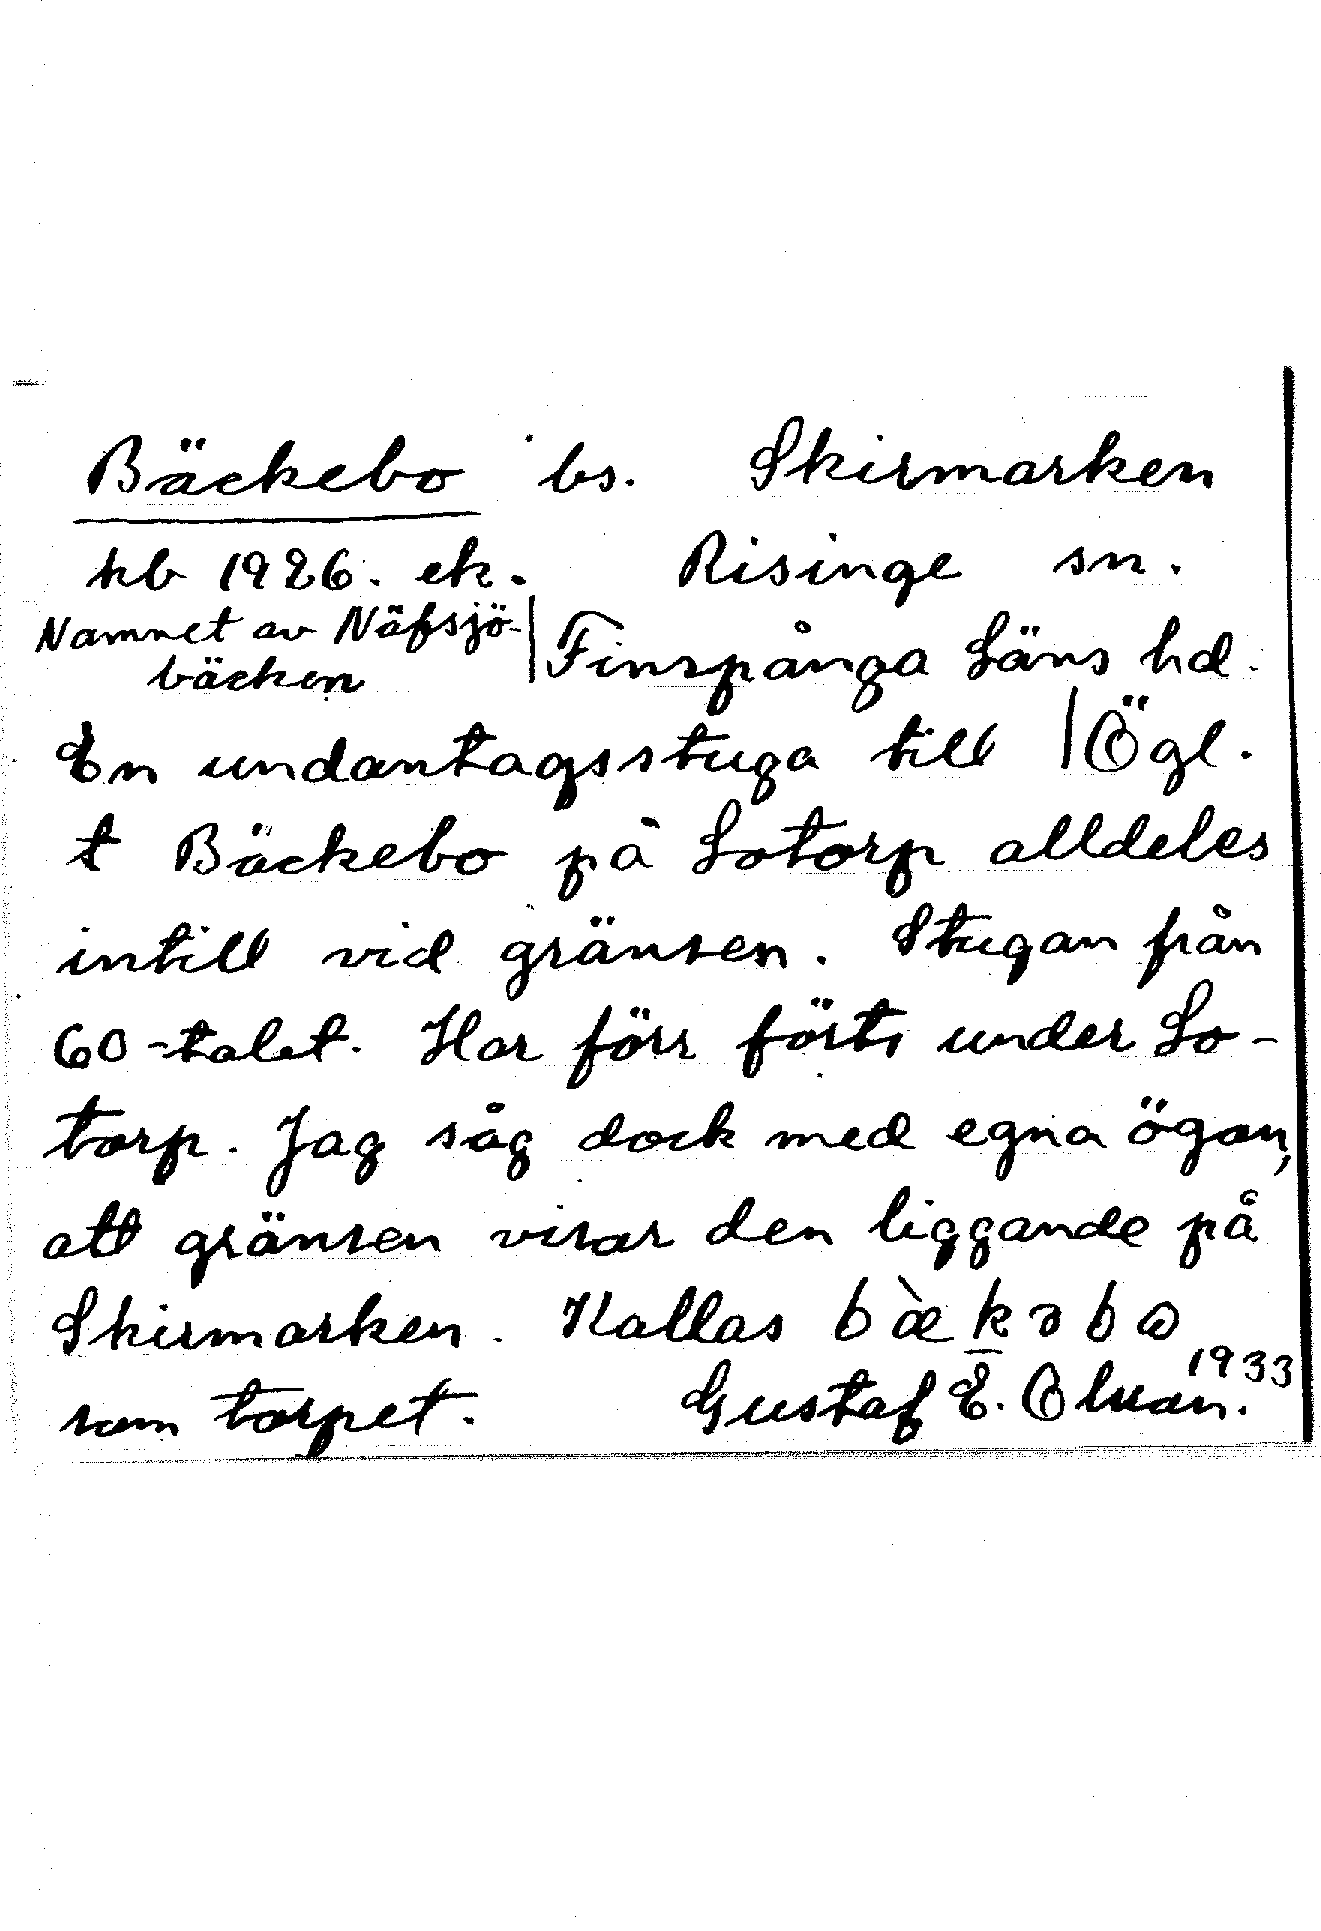 Bäckebo bs. Skirmarken
kb 1926. ek. Risinge sn.
Namnet av Näfsjö-
bäcken
Finspånga Läns hd.
En undantagsstuga till Ögl.
t Bäckebo på Lotorp alldeles
intill vid gränsen. Stugan från
60-talet. Har förr förts under Lo-
torp. Jag såg dock med egna ögon,
att gränsen visar den liggande på
Skirmarken. Kallas bæ̀kəbo
1933
som torpet. Gustaf E. Olsson.